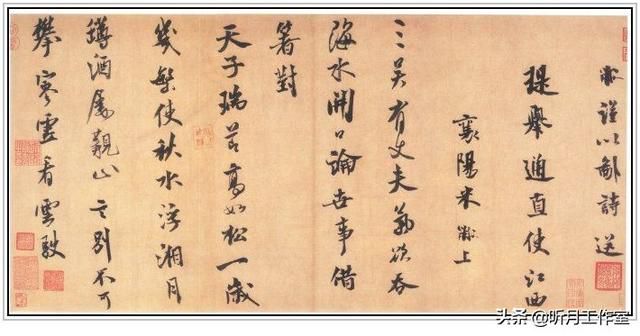 黻謹以鄙詩送
提舉通直使江西
襄陽米黻上
三吳有丈夫氣欲吞
海水開口論世事借
箸對
天子瑞節高如松一歲
幾槃使秋水浮湘月
罇酒屢覯止言別不可
攀寒靈看雲駛
头条 @昕月工作室